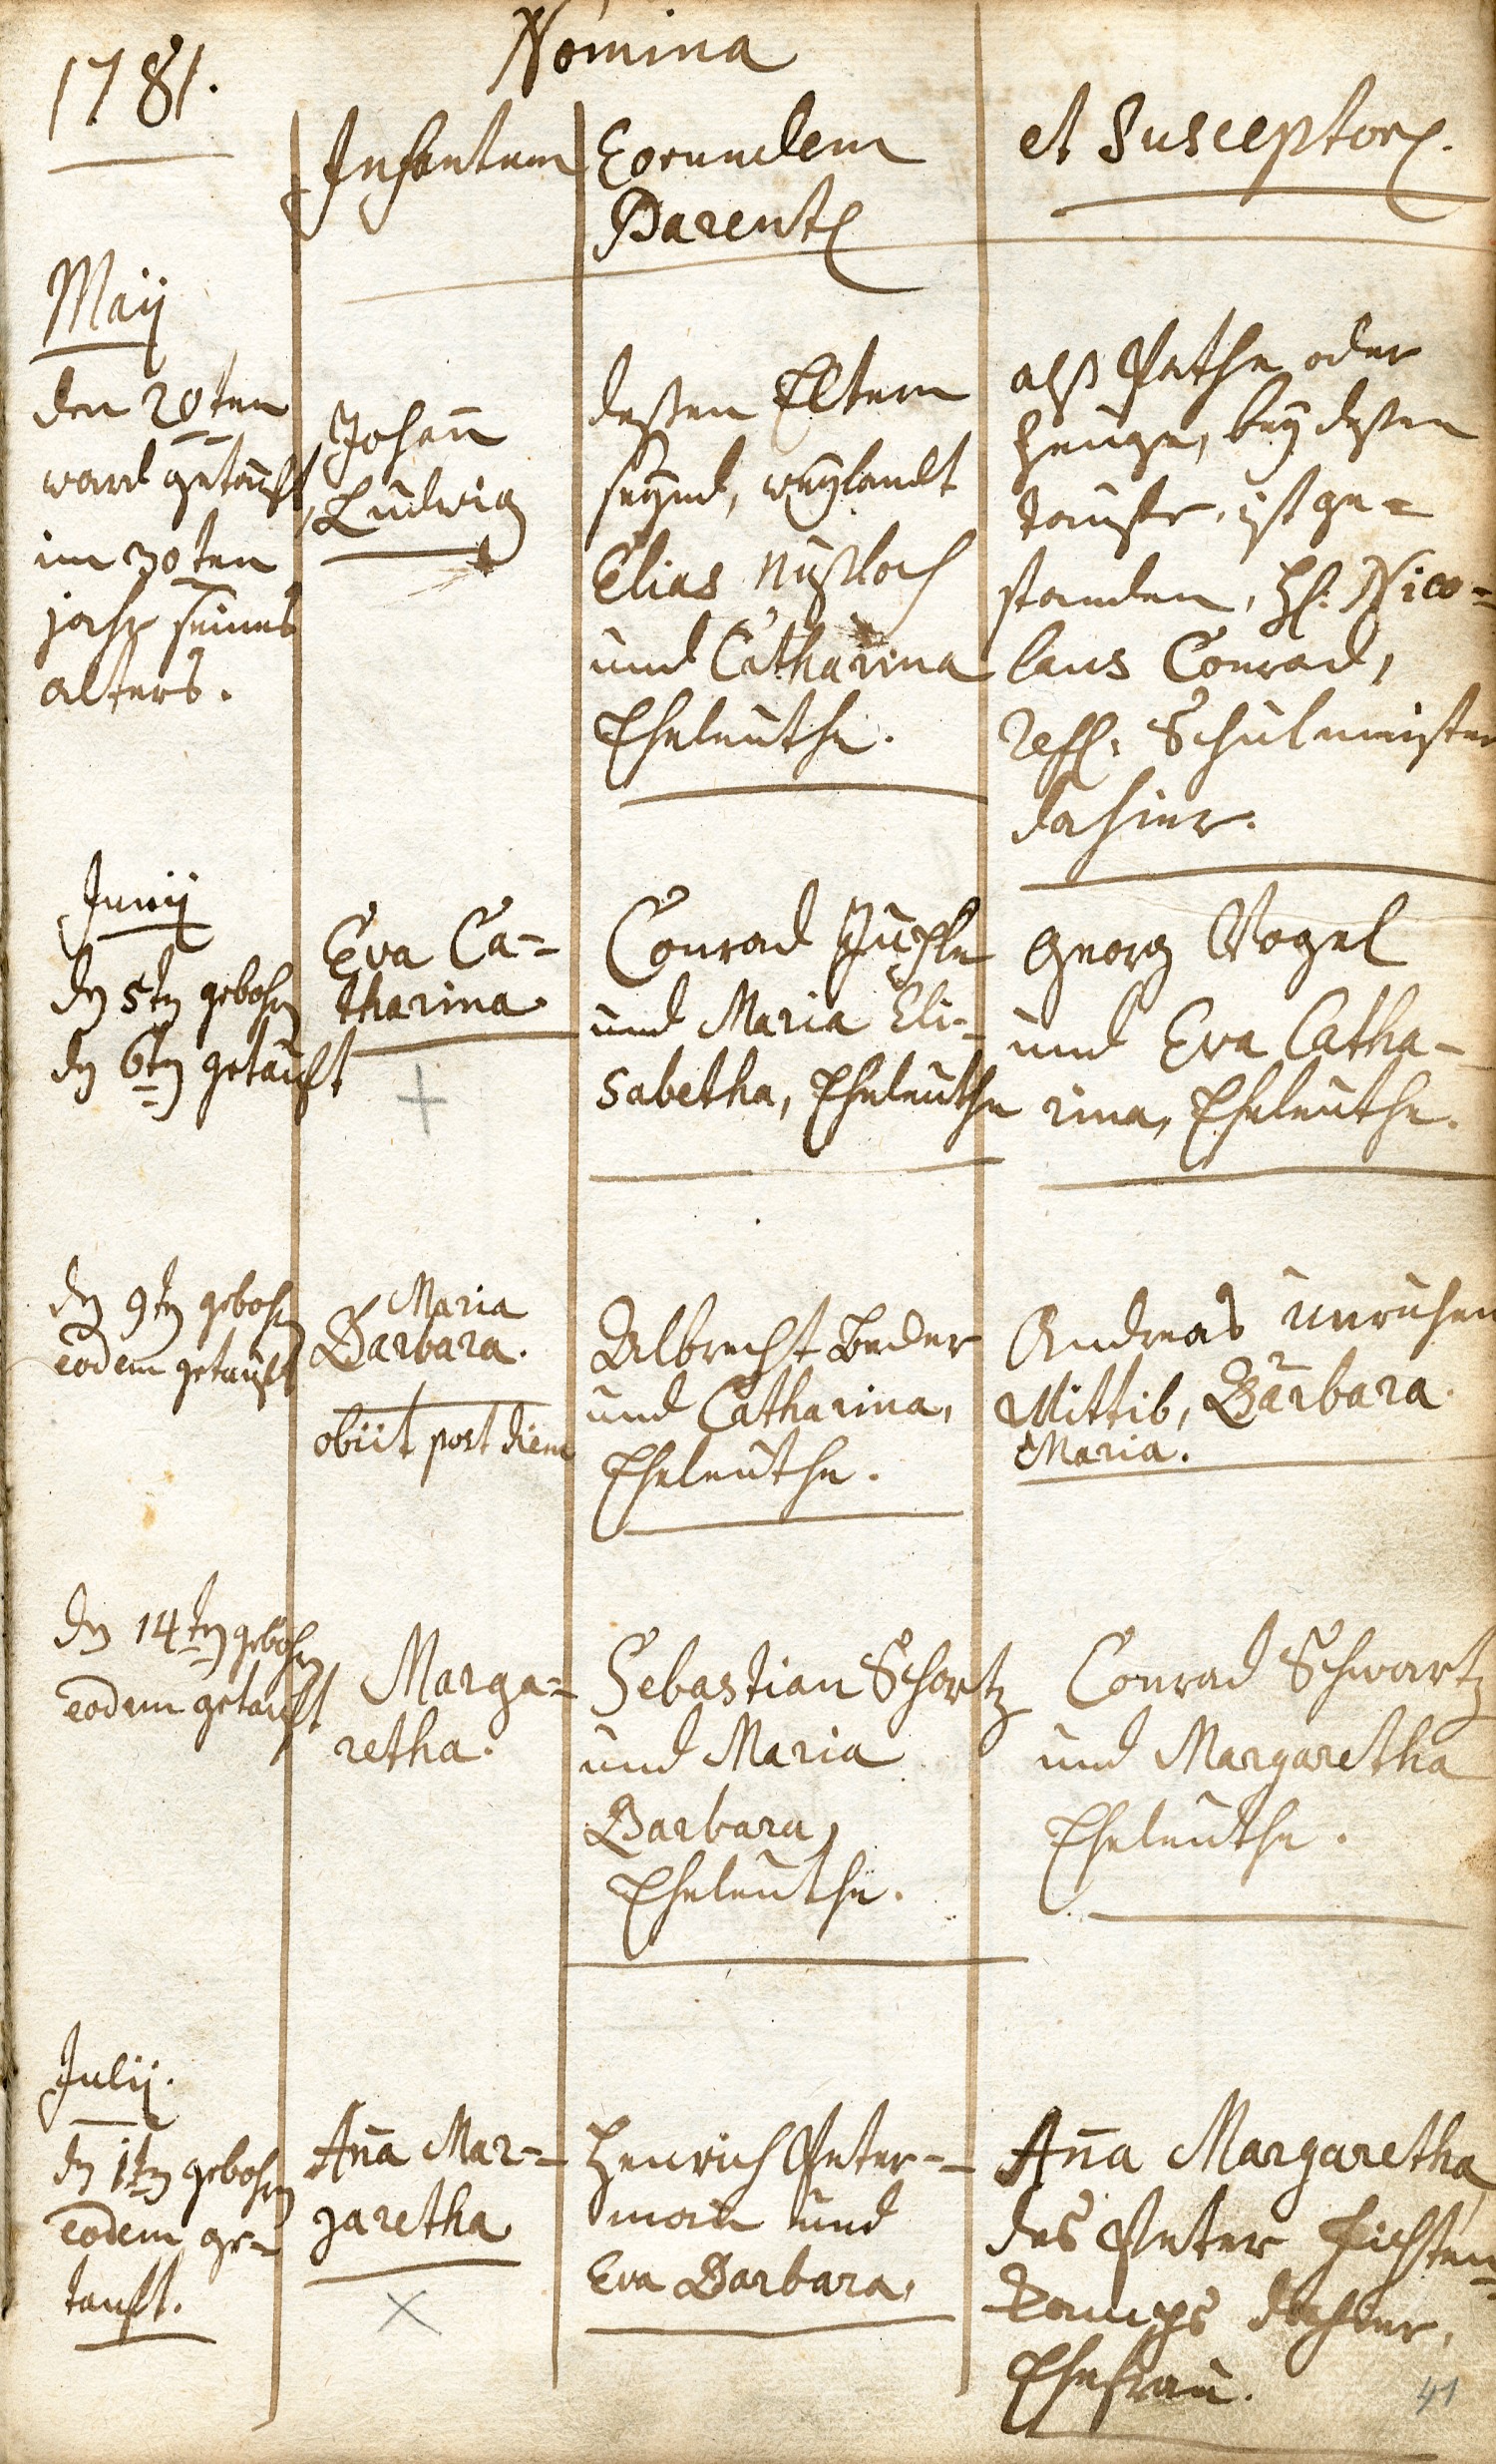 1781.
Nomina
Infantum
Eorundem
Parent
et Susceptor.
Maij
den 20ten
ward getaufft
im 30ten
jahr seines
alters.
Johan̄
Ludwig
deßen Eltern
seynd, weylandt
Elias Nußloch
und Catharina
Eheleuthe.
alß Pathe oder
Zeuge, bey deßen
tauffe, ist ge=
standen, H: Nico=
laus Conrad,
Ref: Schulmeister
dahier.
Junij
dn 5tn gebohrn
dn 6tn getaufft
Eva Ca=
tharina.
Conrad
und Maria Eli=
sabetha, Eheleuthe
Georg Vogel
und Eva Catha=
rina, Eheleuthe.
dn 9tn gebohrn
eodem getaufft
Maria
Barbara.
obiit post diem
Albrecht Beder
und Catharina,
Eheleuthe.
Andreas Unruhen
Wittib, Barbara
Maria.
dn 14tn gebohrn
eodem getaufft
Marga=
retha.
Sebastian Schortz
und Maria
Barbara,
Eheleuthe.
Conrad Schwartz
und Margaretha
Eheleuthe.
Julij.
dn 1tn gebohrn
eodem ge=
taufft.
An̄a Mar=
garetha
Henrich Peter=
man und
Eva Barbara.
An̄a Margaretha
des Peter Fichten=
kamps dahier,
Ehefrau.
41